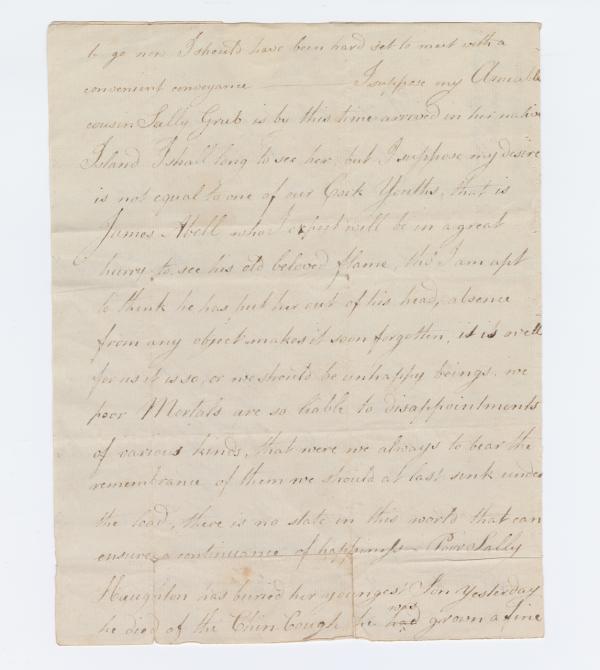 to go now I should have been hard set to meet with a
convenient conveyance ——— I suppose my Amiable
cousin Sally Grub is by this time arrived in her native
Island I shall long to see her, but I suppose my desire
is not equal to one of our Cork Youths, that is
James Abell who I expect will be in a great
hurry to see his old beloved flame, tho' I am apt
to think he has put her out of his head, absence
from any object makes it soon forgotten, it is well
for us it is so, or we should be unhappy beings. we
poor Mortals are so liable to disappointments
of various kinds, that were we always to bear the
remembrance of them we should at last sink under
the load, there is no state in this world that can
ensure a continuance of happiness — Poor Sally
Haughton has buried her youngest Son yesterday
he died of the Chin Cough he was had grown a fine